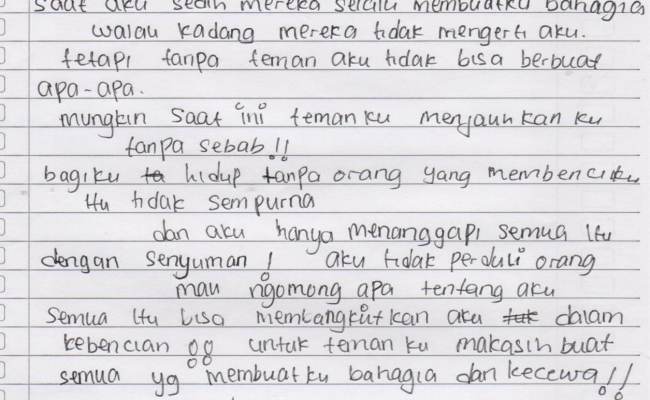 saat aku sedih mereka selalu membuatku bahagia
walau kadang mereka tidak mengerti aku.
tetapi tanpa teman aku tidak bisa berbuat
apa-apa.
mungkin saat ini temanku menjauhkanku
tanpa sebab!!
bagiku hidup tanpa orang yang membenciku
itu tidak sempurna
dan aku hanya menanggapi semua itu
dengan senyuman! aku tidak perduli orang
mau ngomong apa tentang aku
semua itu bisa membangkitkan aku dalam
kebencian untuk temanku makasih buat
semua yg membuatku bahagia dan kecewa!!